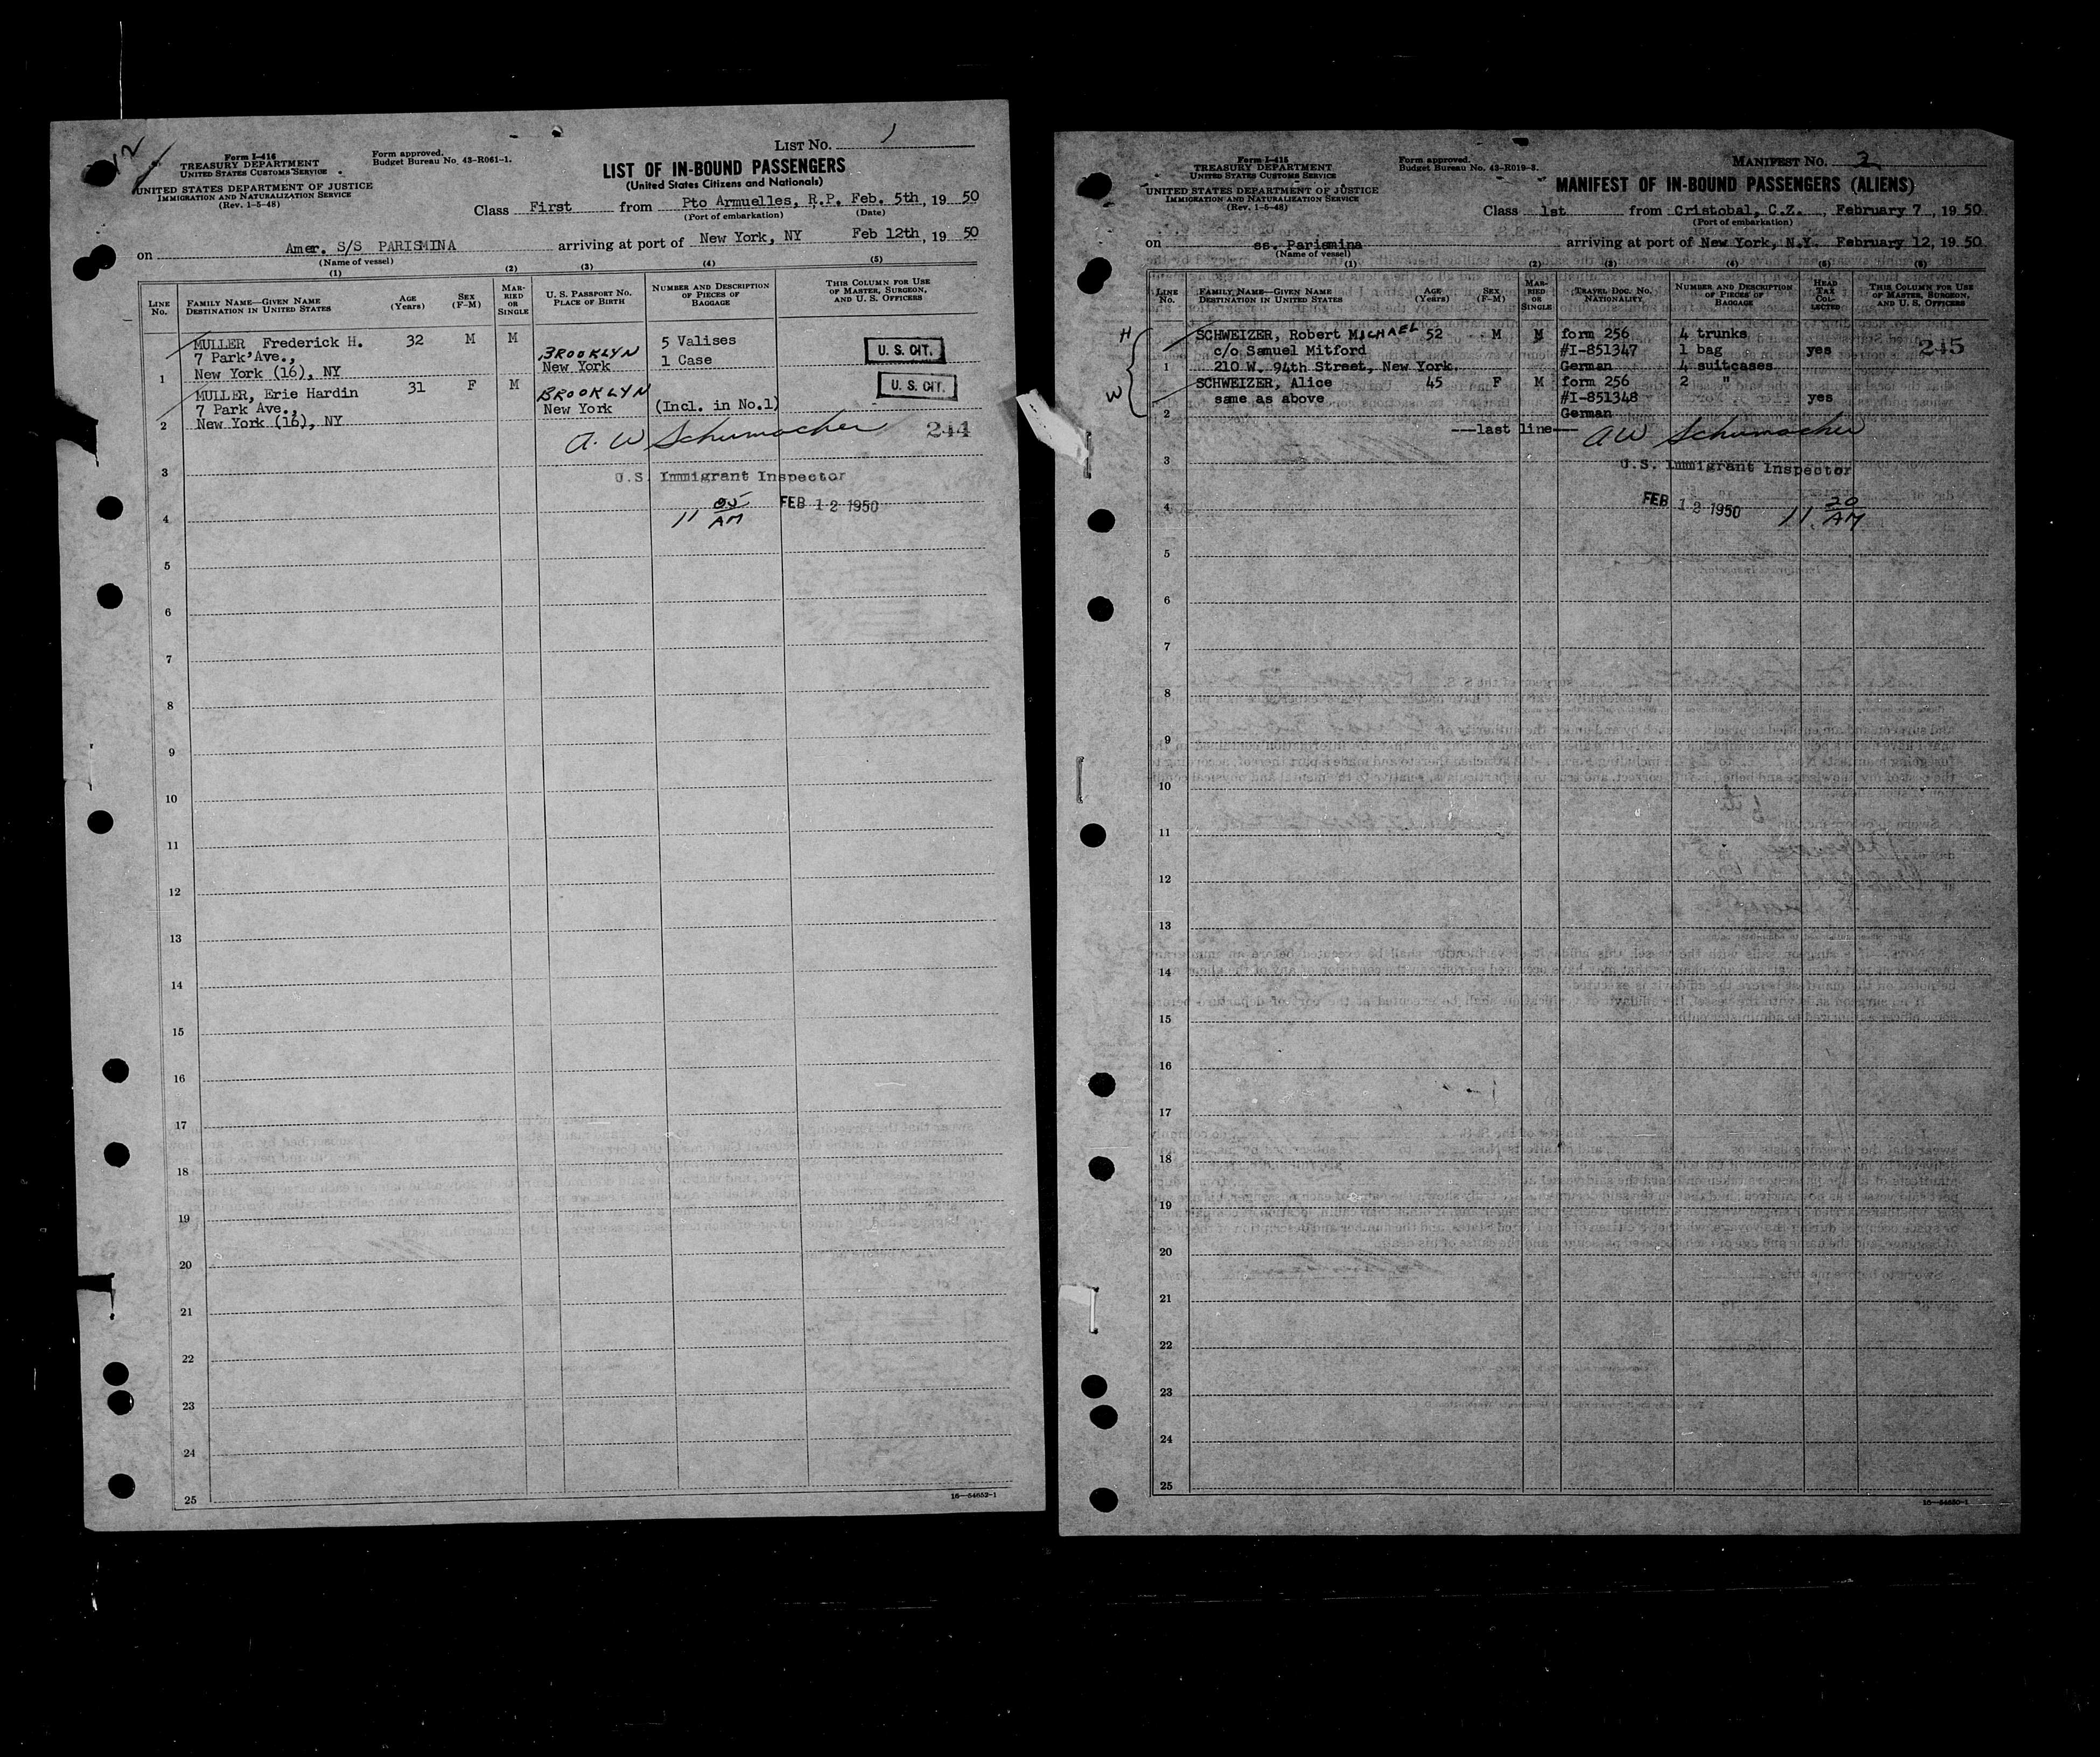 LIST NO. 1
Form I-416
TREASURY DEPARTMENT
UNITED STATES CUSTOMS SERVICE
UNITED STATES DEPARTMENT OF JUSTICE
IMMIGRATION AND NATURALIZATION SERVICE
(Rev. 1-5-48)
Form approved.
Budget Bureau No. 43-R061-1.
LIST OF IN-BOUND PASSENGERS
(United States Citizens and Nationals)
Class First from Pto Armuelles, R.P. Feb. 5th, 19 50
(Port of embarkation) (Date)
on Amer. S/S PARISMINA arriving at port of New York, NY Feb 12th, 19 50
(Name of vessel)
(1) (2) (3) (4) (5)
LINE No. FAMILY NAME—GIVEN NAME DESTINATION IN UNITED STATES AGE (Years) SEX (F-M) MARRIED OR SINGLE U. S. PASSPORT NO. PLACE OF BIRTH NUMBER AND DESCRIPTION OF PIECES OF BAGGAGE THIS COLUMN FOR USE OF MASTER, SURGEON, AND U. S. OFFICERS
MULLER Frederick H. 32 M M 5 Valises
7 Park Ave., BROOKLYN 1 Case U. S. CIT.
1 New York (16), NY New York
MULLER, Erie Hardin 31 F M BROOKLYN U. S. CIT.
7 Park Ave., New York (Incl. in No.1)
2 New York (16), NY
A. W Schumacher 244
3 U.S. Immigrant Inspector
4 11 05 AM FEB 12 1950
5
6
7
8
9
10
11
12
13
14
15
16
17
18
19
20
21
22
23
24
25
16—54652-1
MANIFEST NO. 2
Form I-415
TREASURY DEPARTMENT
UNITED STATES CUSTOMS SERVICE
UNITED STATES DEPARTMENT OF JUSTICE
IMMIGRATION AND NATURALIZATION SERVICE
(Rev. 1-5-48)
Form approved.
Budget Bureau No. 43-R019-3.
MANIFEST OF IN-BOUND PASSENGERS (ALIENS)
Class 1st from Cristobal, C.Z., February 7, 19 50
(Port of embarkation)
on ss. Parismina arriving at port of New York, N.Y. February 12, 19 50
(Name of vessel)
(1) (2) (3) (4) (5) (6)
LINE No. FAMILY NAME—GIVEN NAME DESTINATION IN UNITED STATES AGE (Years) SEX (F-M) MARRIED OR SINGLE TRAVEL DOC. NO. NATIONALITY NUMBER AND DESCRIPTION OF PIECES OF BAGGAGE HEAD TAX COLLECTED THIS COLUMN FOR USE OF MASTER, SURGEON, AND U. S. OFFICERS
H SCHWEIZER, Robert MICHAEL 52 M M form 256 4 trunks
c/o Samuel Mitford #I-851347 1 bag yes 245
1 210 W. 94th Street, New York. German 4 suitcases
W SCHWEIZER, Alice 45 F M form 256 2 "
same as above #I-851348 yes
2 German
---last line--- A W Schumacher
3 U.S. Immigrant Inspector
4 FEB 12 1950 11 20 AM
5
6
7
8
9
10
11
12
13
14
15
16
17
18
19
20
21
22
23
24
25